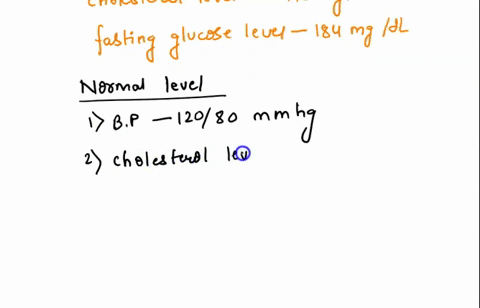 cholesterol level –
fasting glucose level – 184 mg/dL
Normal level
1) B.P – 120/80 mmhg
2) Cholesterol lev